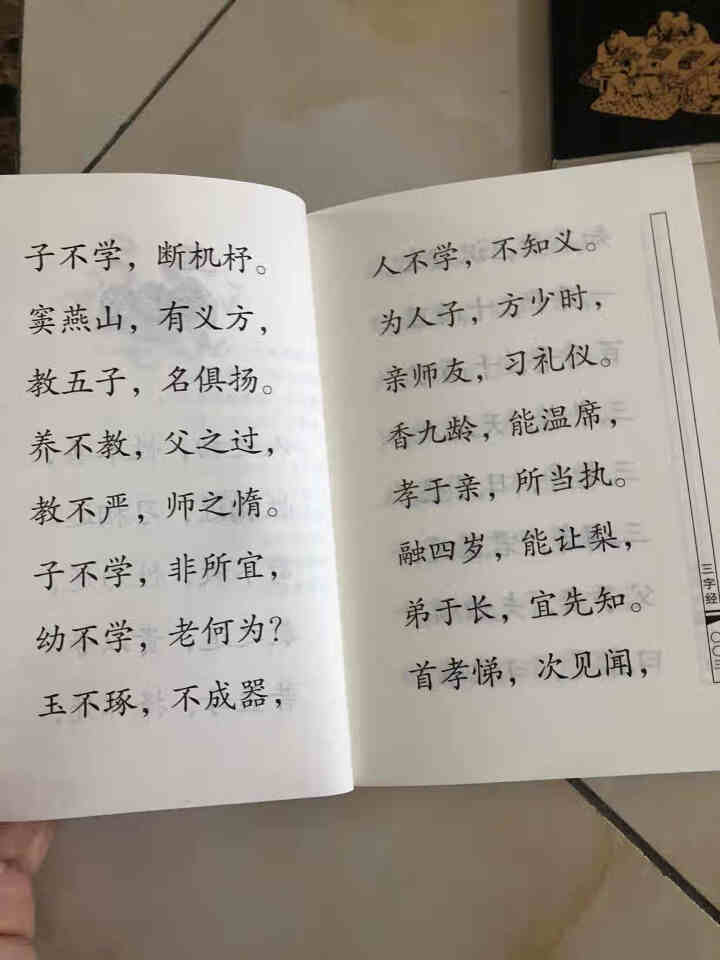 子不学，断机杼。
窦燕山，有义方，
教五子，名俱扬。
养不教，父之过，
教不严，师之惰。
子不学，非所宜，
幼不学，老何为？
玉不琢，不成器，
人不学，不知义。
为人子，方少时，
亲师友，习礼仪。
香九龄，能温席，
孝于亲，所当执。
融四岁，能让梨，
弟于长，宜先知。
首孝悌，次见闻，
三字经